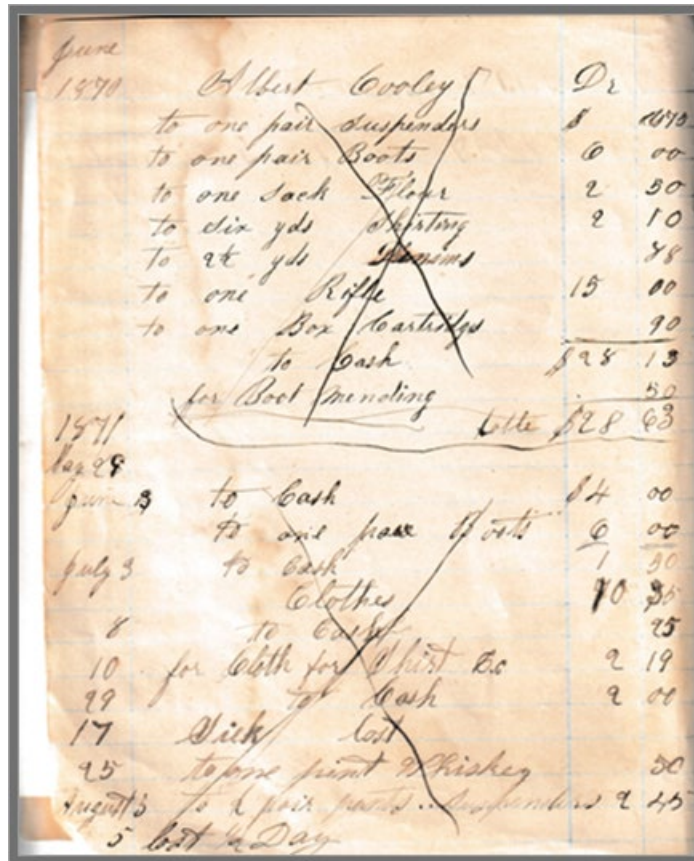 June
1870 Albert Cooley Dr
to one pair Suspenders $
to one pair Boots 6 00
to one sack Flour 2 50
to six yds Shirting 2 10
to 2½ yds
to one Rifle 15 00
to one Box Cartridges 90
to Cash $28 13
for Boot mending 50
$28 63
1871
June 3 to Cash $4 00
to one pair Boots 6 00
July 3 to Cash 1 50
Clothes
8 to Cash 25
10 for Cloth for Shirt &c 2 19
29 to Cash 2 00
17 Sick lost
25 to one pint Whiskey 50
August 3 to pair pants .. Suspenders 2 45
5 lost ½ Day